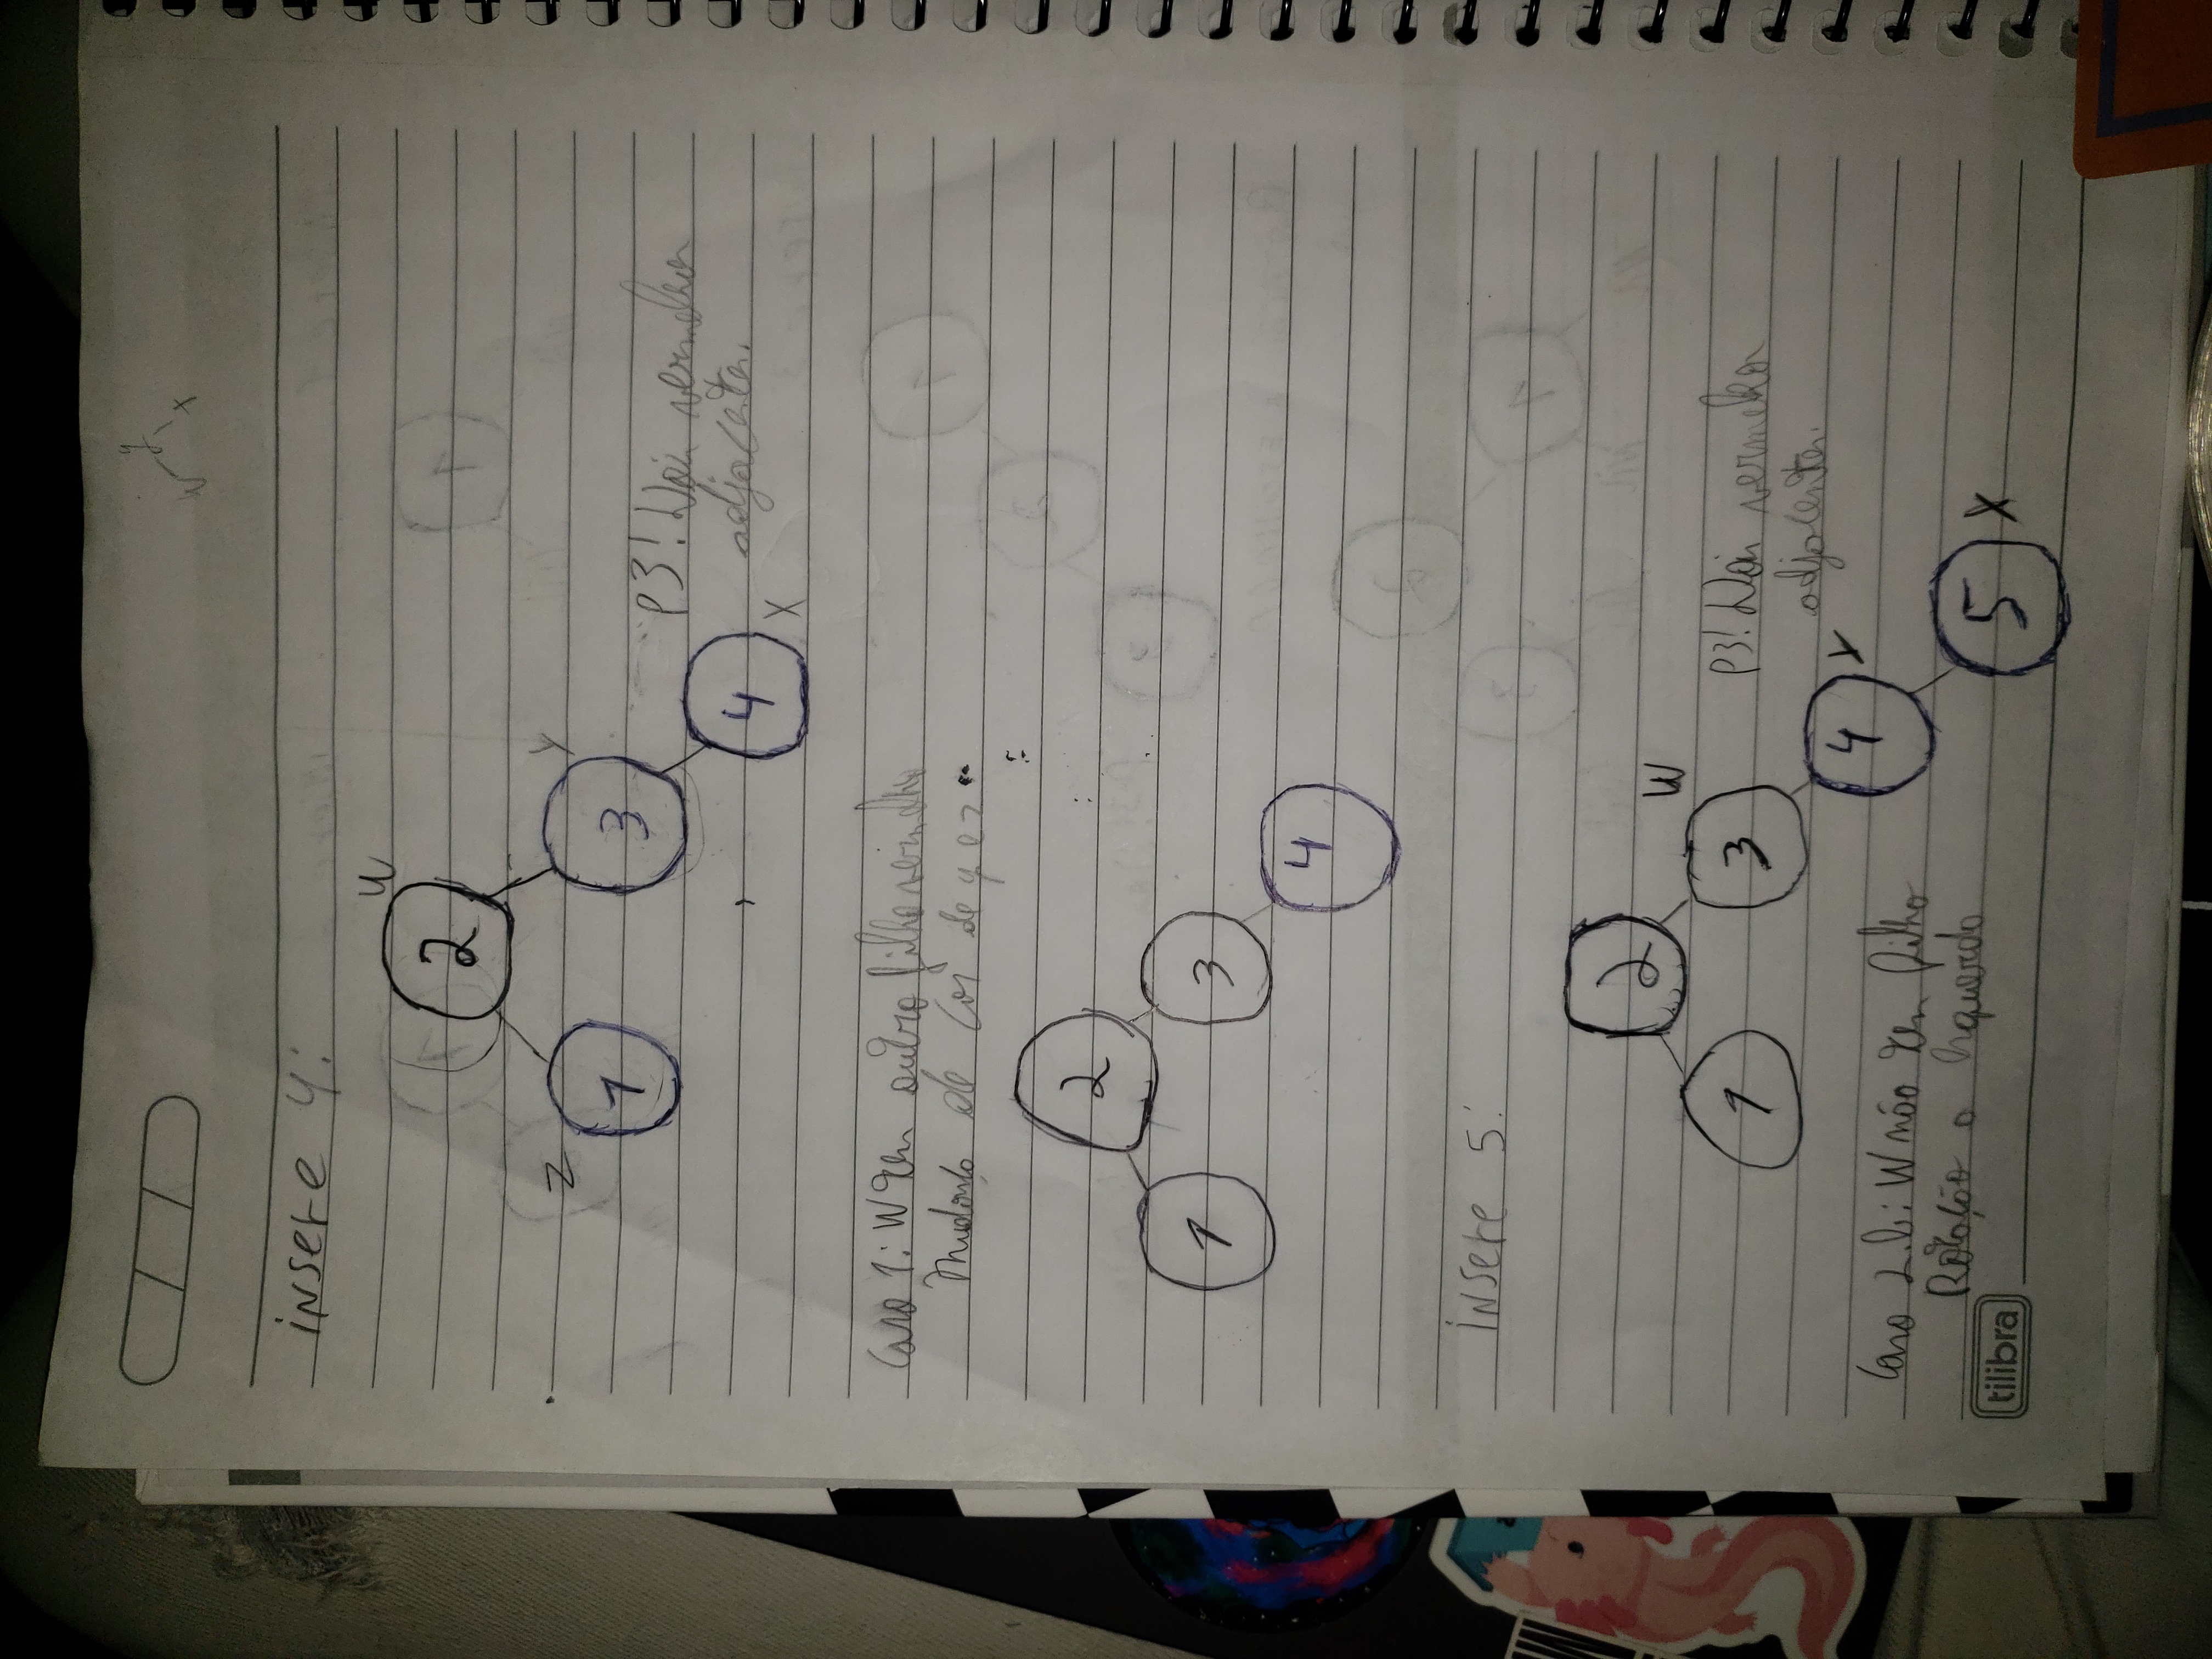 y
W x
insere 4:
W
2
Z Y
1 3
P3! Dois vermelhos
adjacentes.
4
X
Caso 1: W tem outro filho vermelho
Mudança de cor de y e z
2
1 3
4
insere 5:
2
W
1 3
P3! Dois vermelhos
adjacentes.
4 Y
Caso 2.b: W não tem filho
Rotação a Esquerda
5 X
tilibra